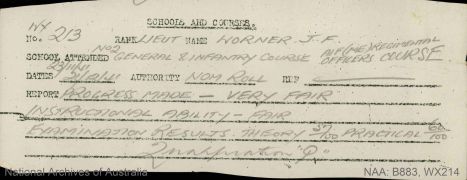 SCHOOLS AND COURSES.
WX
No. 213 RANK LIEUT NAME HORNER J.F.
SCHOOL ATTENDED No2 GENERAL & INFANTRY COURSE AIF (ME) REGIMENTAL OFFICERS COURSE
DATES 23/11/41 AUTHORITY NOM ROLL REF
REPORT PROGRESS MADE - VERY FAIR
INSTRUCTIONAL ABILITY - FAIR
EXAMINATION RESULTS THEORY 57/100 PRACTICAL 60/100
Qualification "Q"
National Archives of Australia NAA: B883, WX214